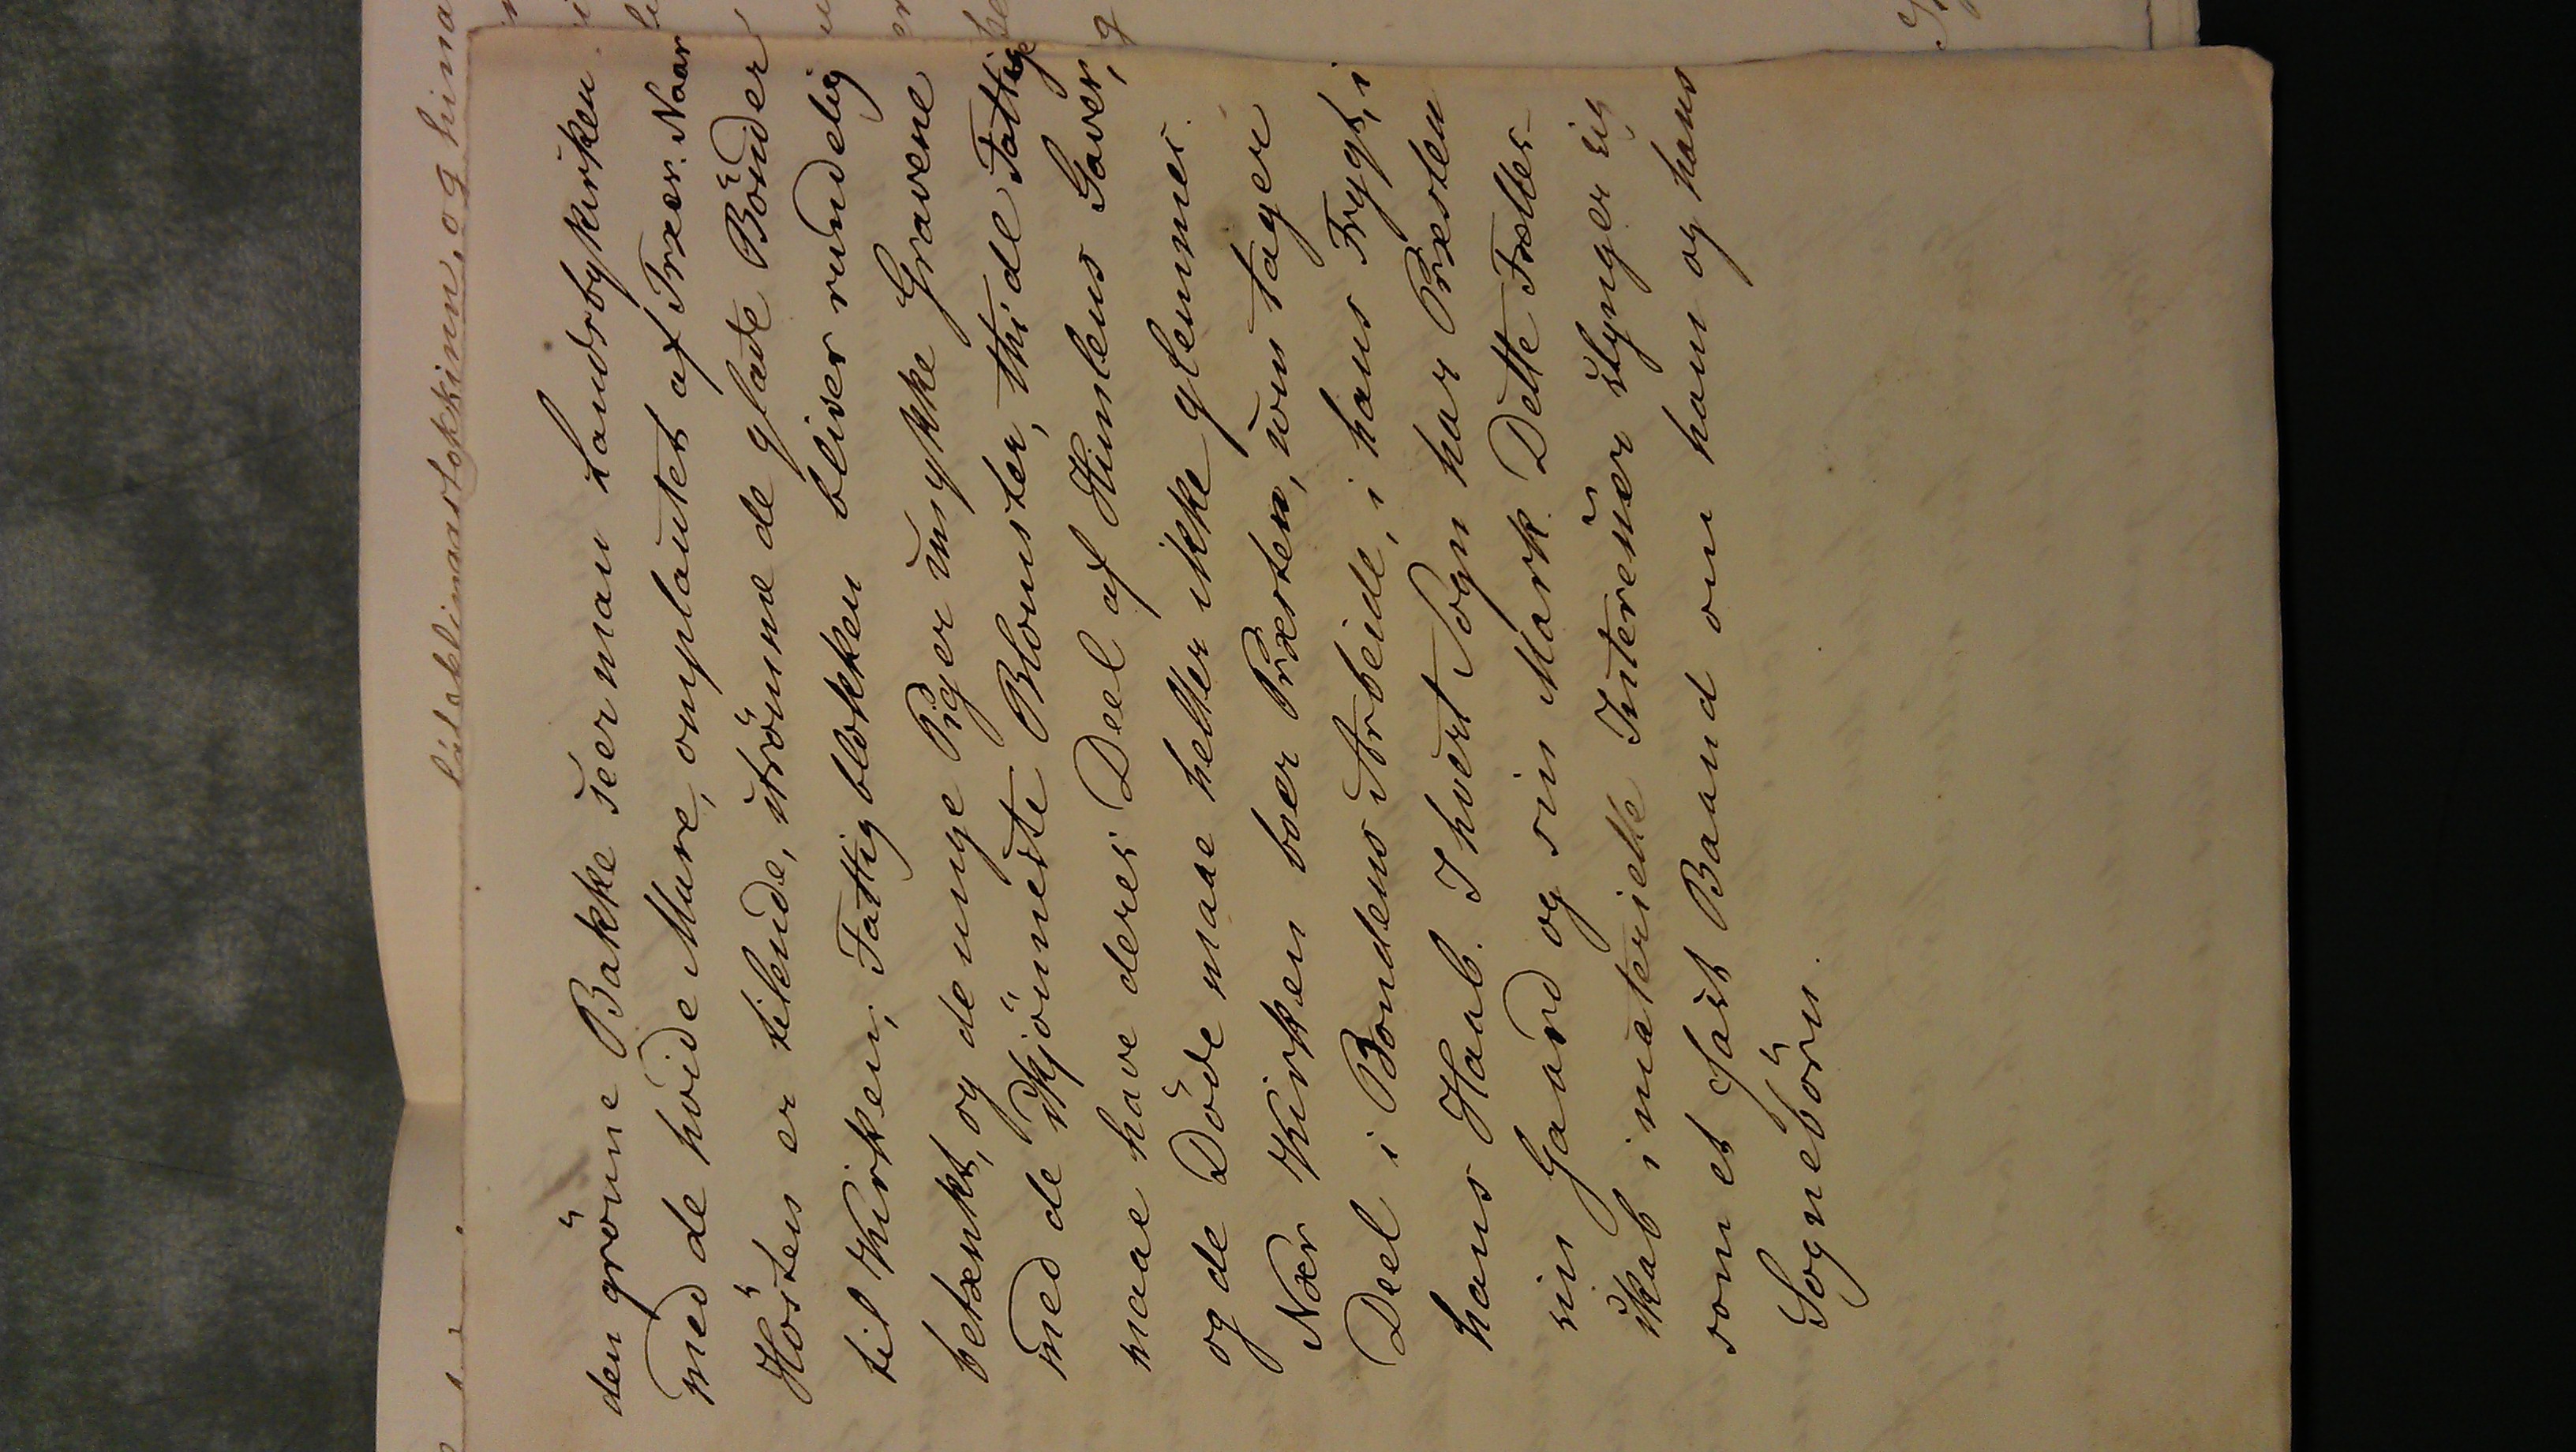 den grönne Bakke seer man Landsbykirken
med de hvide Mure, omplantet af Træer. Naar
Hösten er tilende, strömme de glade Bönder
til Kirken; Fattigblokken bliver rundelig
betænkt, og de unge Piger smykke Gravene
med de skjönneste Blomster, thi de Fattige
maae have deres Deel af Himlens Gaver,
og de Döde maae heller ikke glemmes.
Nær Kirken boer Præsten, som tager
Deel i Bondens Arbeide, i hans Frygt, i
hans Haab. I hvert Sogn har Præsten
sin Gaard og sin Mark. Dette Fælles-
skab i materielle Interesser slynger sig
som et fast Baand om ham og hans
Sognebörn.
og hina